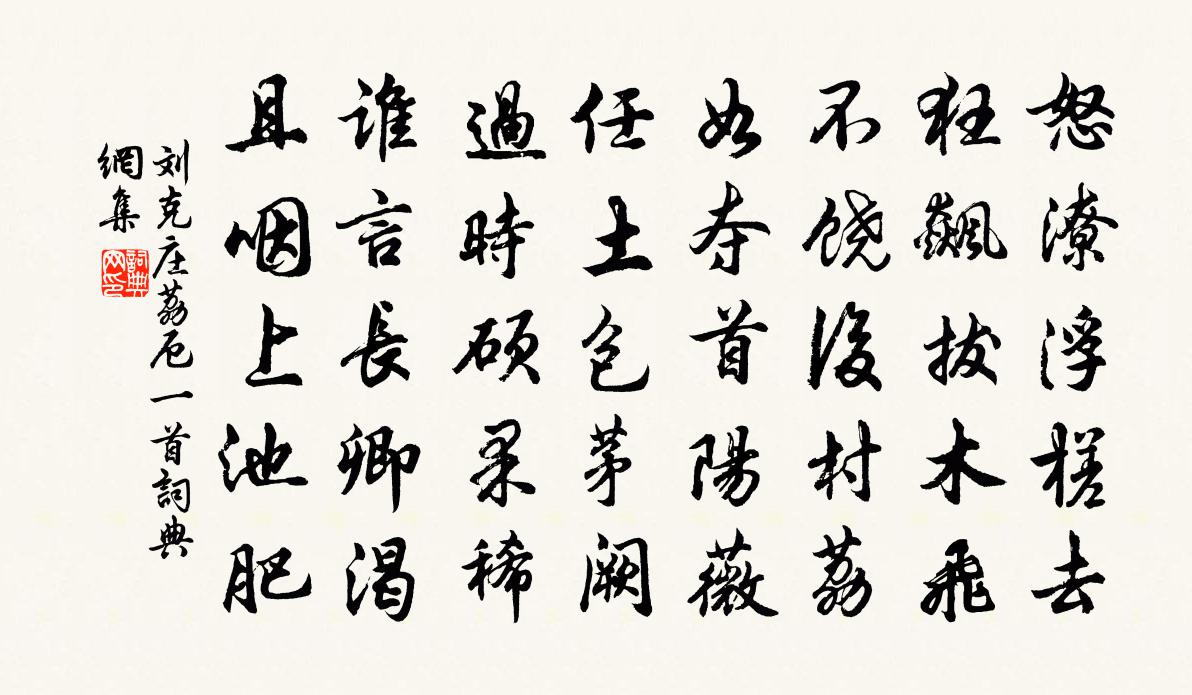 怒潦浮槎去
狂飆拔木飛
不饶後村荔
如夺首陽薇
任土包茅闕
過時硕果稀
谁言長卿渴
且咽上池肥
刘克庄荔厄一首詞典
網集
詞典
网印